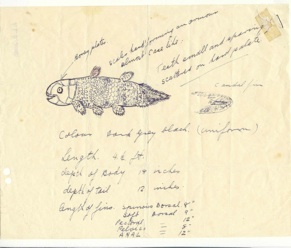 bony plate
scales hard forming an armour
almost case like
teeth small and sparsely
scattered on hard palate
Caudal fin
Colour hard grey black (uniform)
length. 4½ ft.
depth of Body 14 inches
depth of tail 12 inches
length of fins. spinous Dorsal 8"
Soft Dorsal 9"
Pectoral 12"
Pelvics = 8"
Anal = 12"